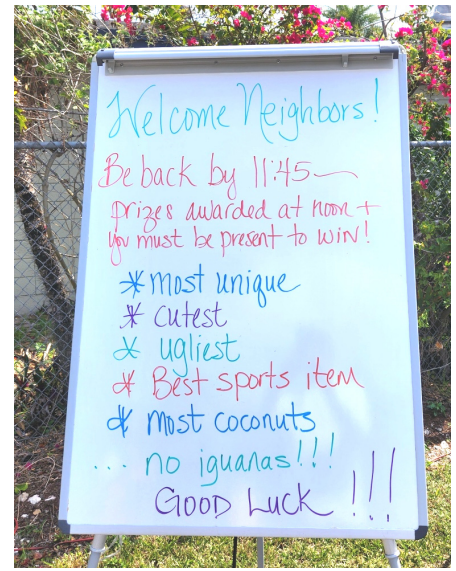 Welcome Neighbors!
Be back by 11:45
prizes awarded at noon +
you must be present to win!
* most unique
* cutest
* ugliest
* Best sports item
* most coconuts
... no iguanas!!!
GOOD LUCK !!!